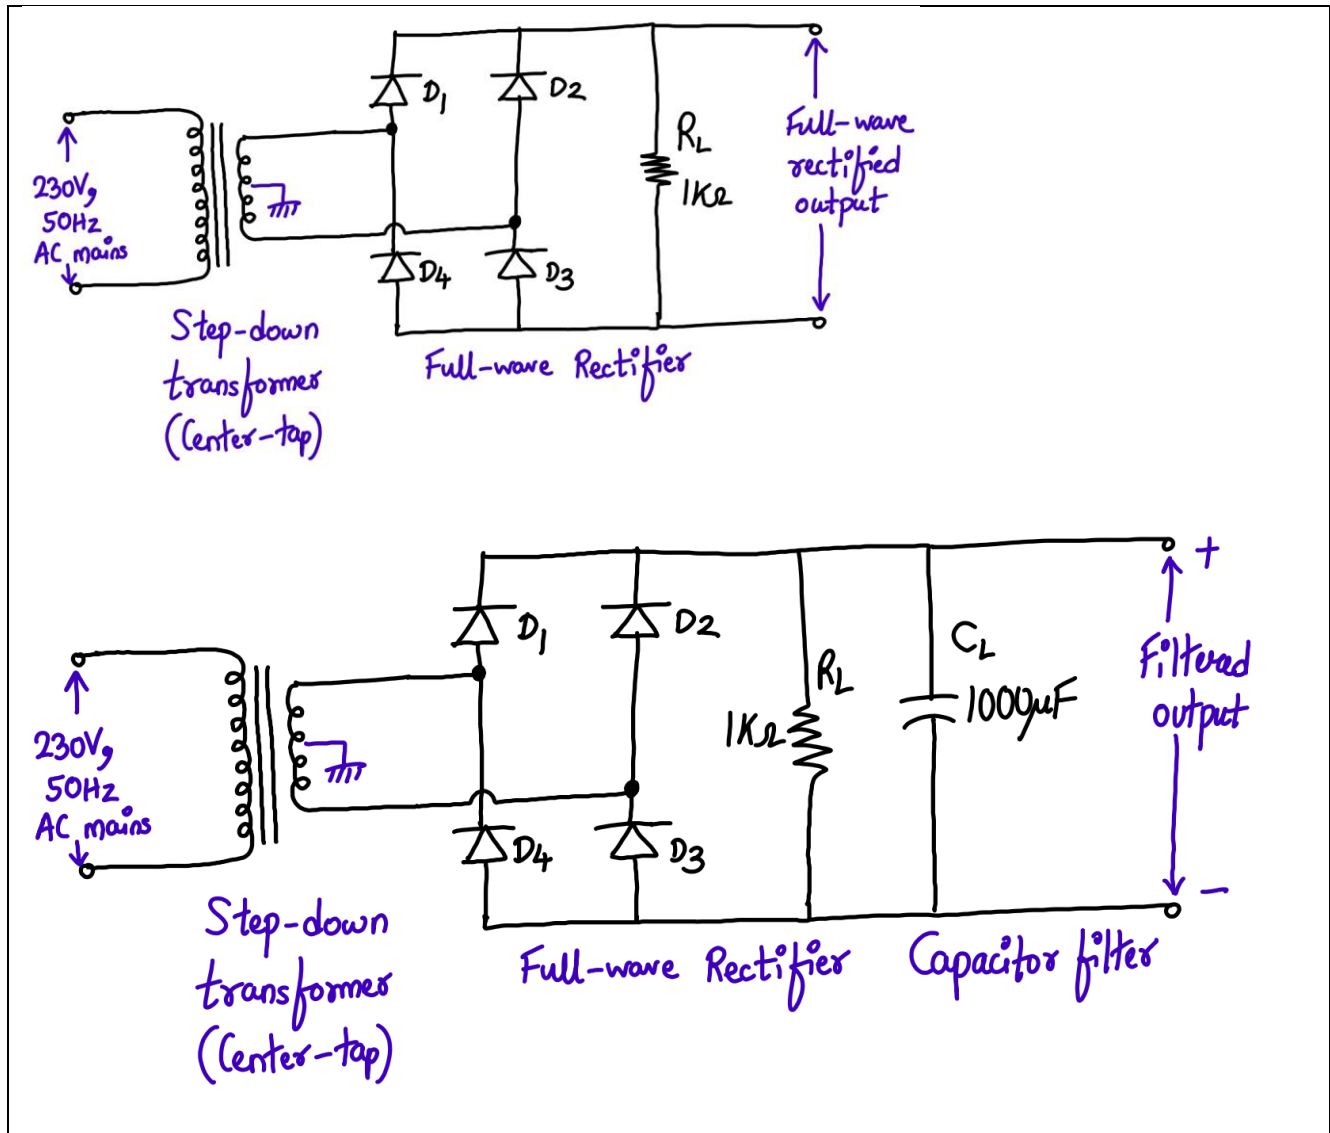 D1
D2
230V,
50Hz
AC mains
RL
1KΩ
Full-wave
rectified
output
D4
D3
Step-down
transformer
(Center-tap)
Full-wave Rectifier
+
D1
D2
230V,
50Hz
AC mains
RL
1KΩ
CL
1000μF
Filtered
output
D4
D3
-
Step-down
transformer
(Center-tap)
Full-wave Rectifier
Capacitor filter